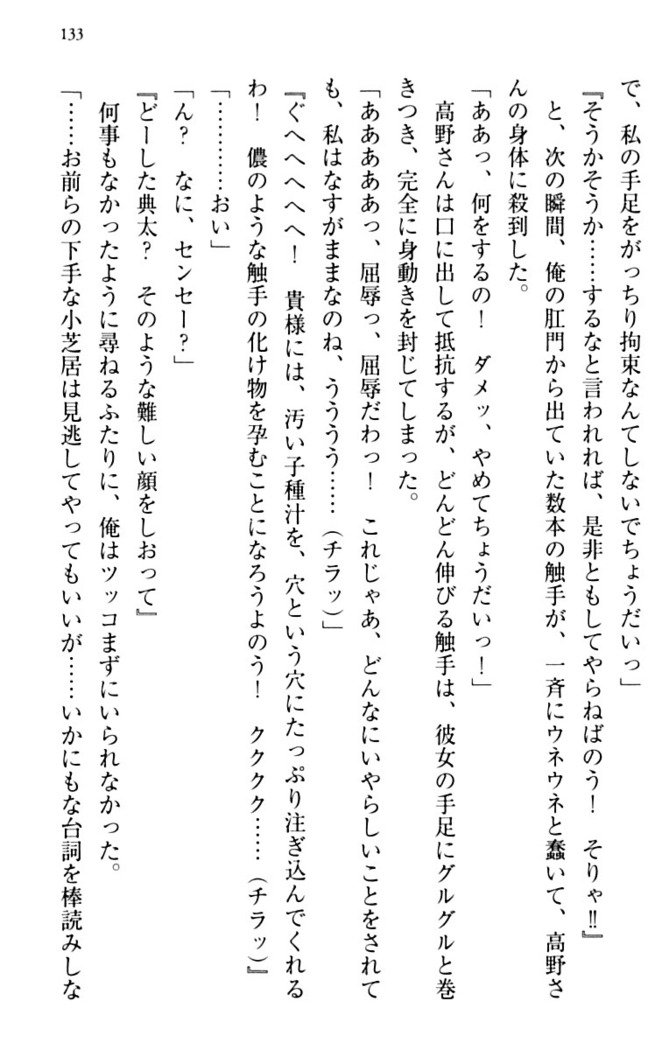 133
で、私の手足をがっちり拘束なんてしないでちょうだいっ」
『そうかそうか……するなと言われれば、是非ともしてやらねばのう！　そりゃ!!』
　と、次の瞬間、俺の肛門から出ていた数本の触手が、一斉にウネウネと蠢いて、高野さ
んの身体に殺到した。
「ああっ、何をするの！　ダメッ、やめてちょうだいっ！」
　高野さんは口に出して抵抗するが、どんどん伸びる触手は、彼女の手足にグルグルと巻
きつき、完全に身動きを封じてしまった。
「ああああああっ、屈辱っ、屈辱だわっ！　これじゃあ、どんなにいやらしいことをされて
も、私はなすがままなのね、うううう……（チラッ）」
『ぐへへへへへ！　貴様には、汚い子種汁を、穴という穴にたっぷり注ぎ込んでくれる
わ！　儂のような触手の化け物を孕むことになろうよのう！　クククク……（チラッ）』
「…………おい」
「ん？　なに、センセー？」
『どーした典太？　そのような難しい顔をしおって』
　何事もなかったように尋ねるふたりに、俺はツッコまずにいられなかった。
「……お前らの下手な小芝居は見逃してやってもいいが……いかにもな台詞を棒読みしな